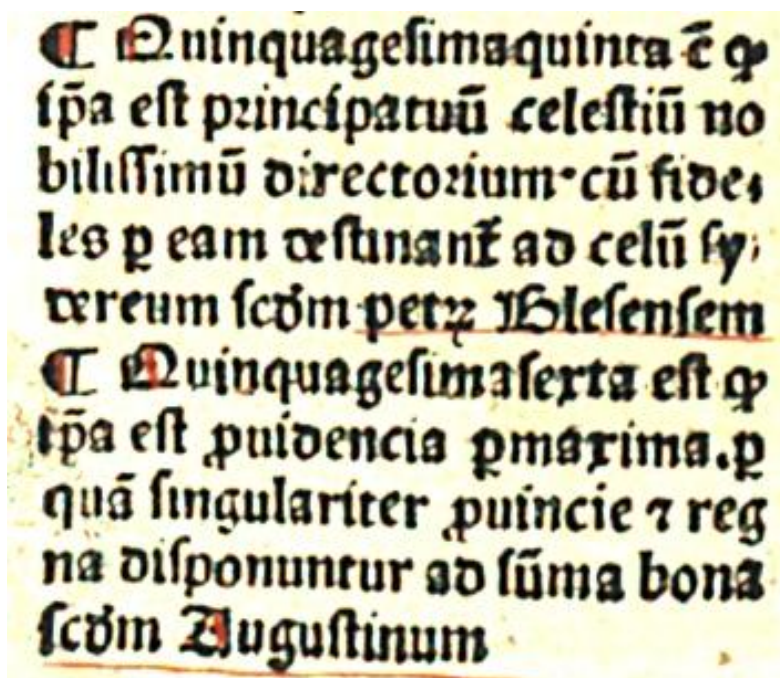 ¶ Quinquagesimaquinta ē ꝙ
ip̄a est principatuū celestiū no
bilissimū directorium·cū fide⸗
les ꝑ eam destinant᷑ ad celū sy⸗
dereum scd̄m petrꝝ Blesensem
¶ Quinquagesimasexta est ꝙ
ip̄a est ꝓuidencia ꝑmaxima.ꝑ
quā singulariter ꝓuincie ⁊ reg
na disponuntur ad sūma bona
scd̄m Augustinum